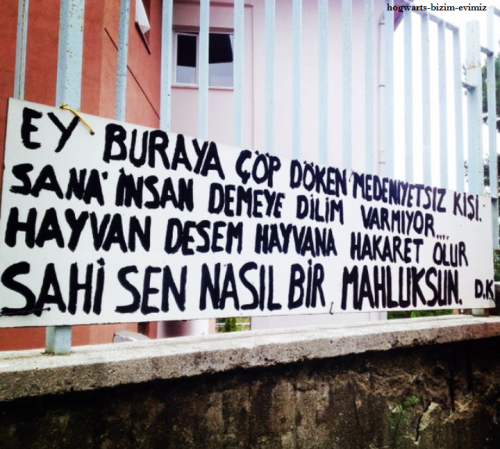 hogwarts-bizim-evimiz
EY BURAYA ÇÖP DÖKEN MEDENİYETSİZ KİŞİ.
SANA İNSAN DEMEYE DİLİM VARMIYOR....
HAYVAN DESEM HAYVANA HAKARET OLUR
SAHİ SEN NASIL BİR MAHLUKSUN. D.K